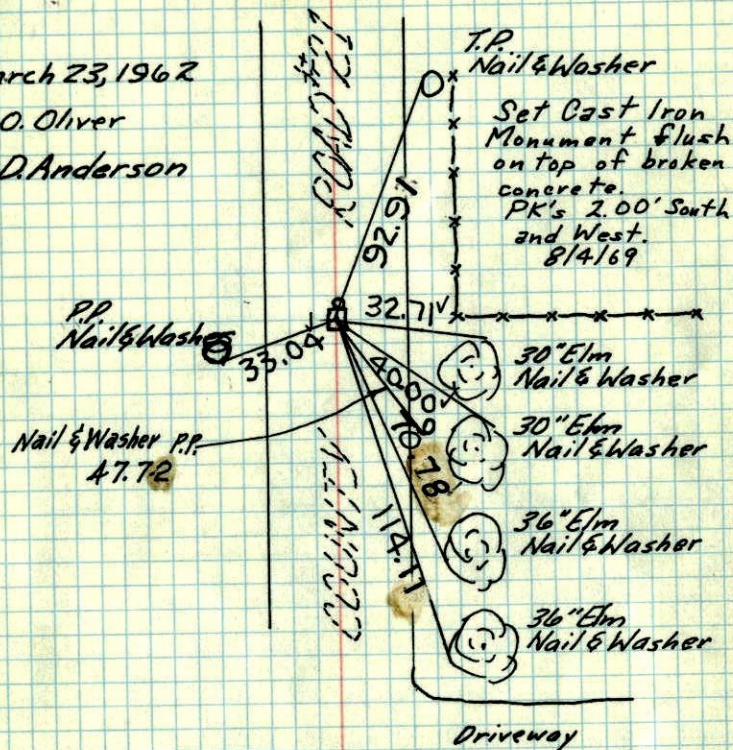 March 23, 1962
O. Oliver
D. Anderson
T.P.
Nail & Washer
Set Cast Iron
Monument flush
on top of broken
concrete.
PK's 2.00' South
and West.
8/4/69
92.91
32.71√
P.P.
Nail & Washer
33.04
40.00√
30" Elm
Nail & Washer
30" Elm
Nail & Washer
Nail & Washer P.P.
47.72
70.78
36" Elm
Nail & Washer
114.17
36" Elm
Nail & Washer
Driveway